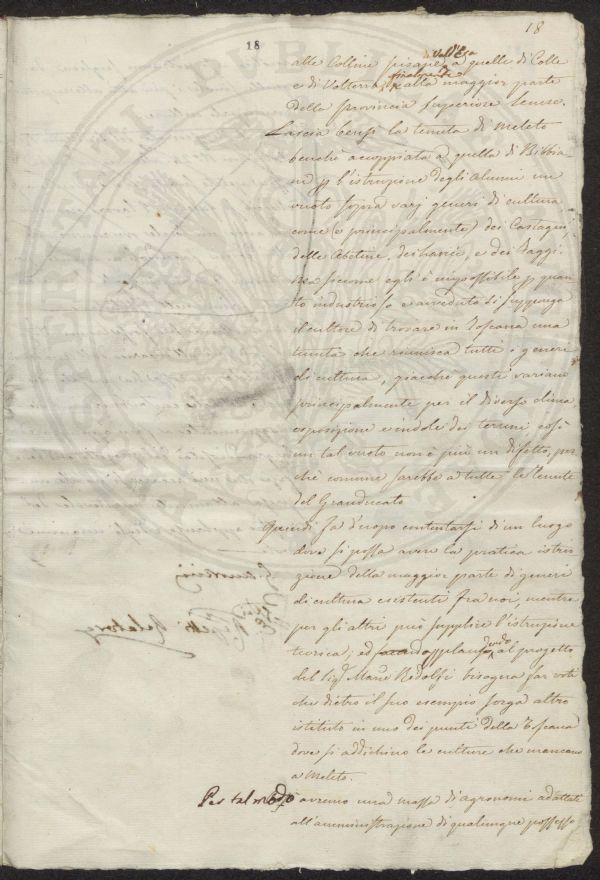 18
18
di Vald'Elsa
alle Colline pisane, a quelle di Colle
finalmente
e di Volterra, e alla maggior parte
della provincia superiore Senese.
Lascia bensì la tenuta di Meleto
benchè accoppiata a quella di Bibbia
no p l'istruzione degli alunni un
vuoto sopra varj generi di cultura
come (e principalmente) dei Castagni
delle Abetine, dei Larici, e dei Faggi.
siccome egli è impossibile p quan
to industrioso e avveduto si supponga
il cultore di trovare in Toscana una
tenuta che riunisca tutti i generi
di cultura, giacchè questi variano
principalmente per il diverso clima,
esposizione e indole dei terreni così
un tal vuoto non è più un difetto, per
chè comune sarebbe a tutte le tenute
del Granducato
Quindi fa d'uopo contentarsi di un luogo
dove si possa avere la pratica istru
zione della maggior parte di generi
di cultura esistenti fra noi, mentre
per gli altri può supplire l'istruzione
teorica; ed applaudendo al progetto
del Sig. March. Ridolfi bisogna far voti
che dietro il suo esempio sorga altro
istituto in uno dei punti della Toscana
dove si addichino le culture che mancano
a Meleto.
Per tal modo avremo una massa di agronomi adattati
all'amministrazione di qualunque possesso
Relatore